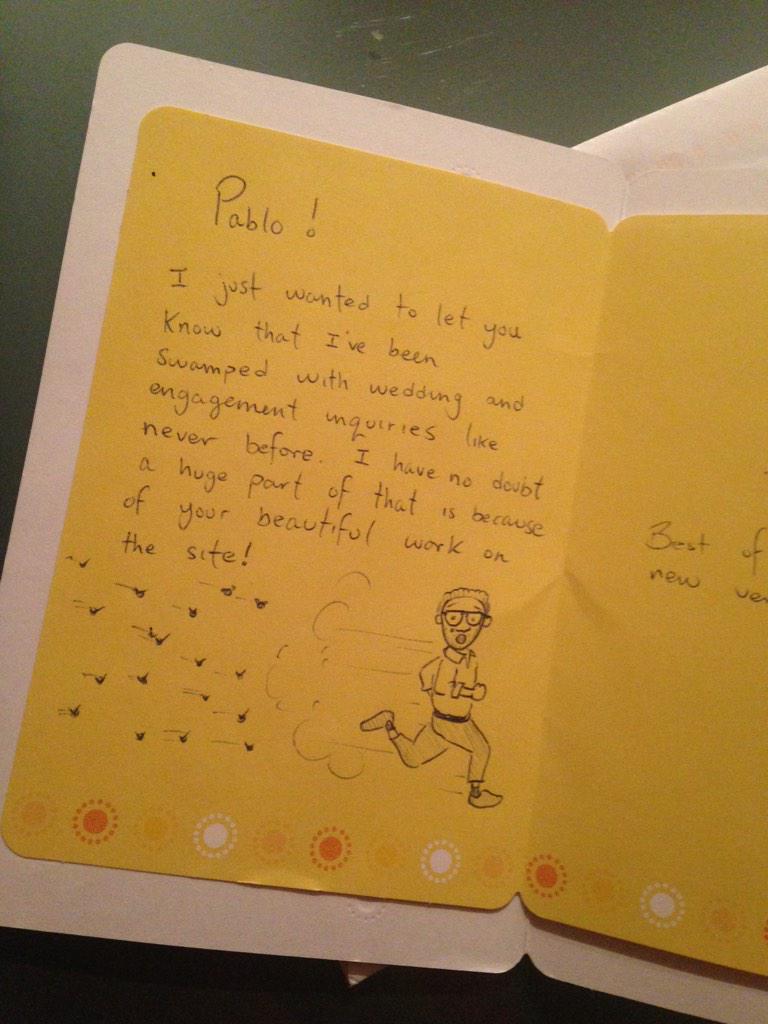 Pablo!
I just wanted to let you
know that I've been
swamped with wedding and
engagement inquiries like
never before. I have no doubt
a huge part of that is because
of your beautiful work on
the site!
Best of
new